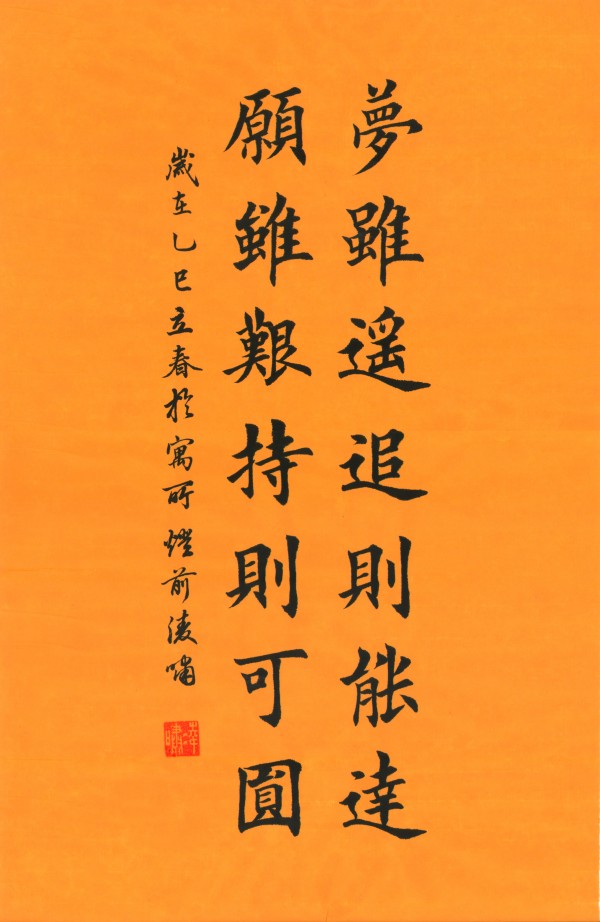 夢雖遥追則能達
願雖艱持則可圓
歲在乙巳立春於寓所燈前淩嘯